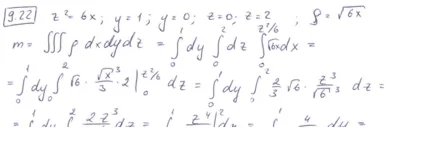 9.22 z² = 6x; y = 1; y = 0; z = 0; z = 2; ρ = √6x
m = ∭ ρ dxdydz = ∫₀¹ dy ∫₀² dz ∫₀^{z²/6} √6x dx =
= ∫₀¹ dy ∫₀² √6 · √x³/3 · 2 |₀^{z²/6} dz = ∫₀¹ dy ∫₀² 2/3 √6 · z³/√6³ dz =